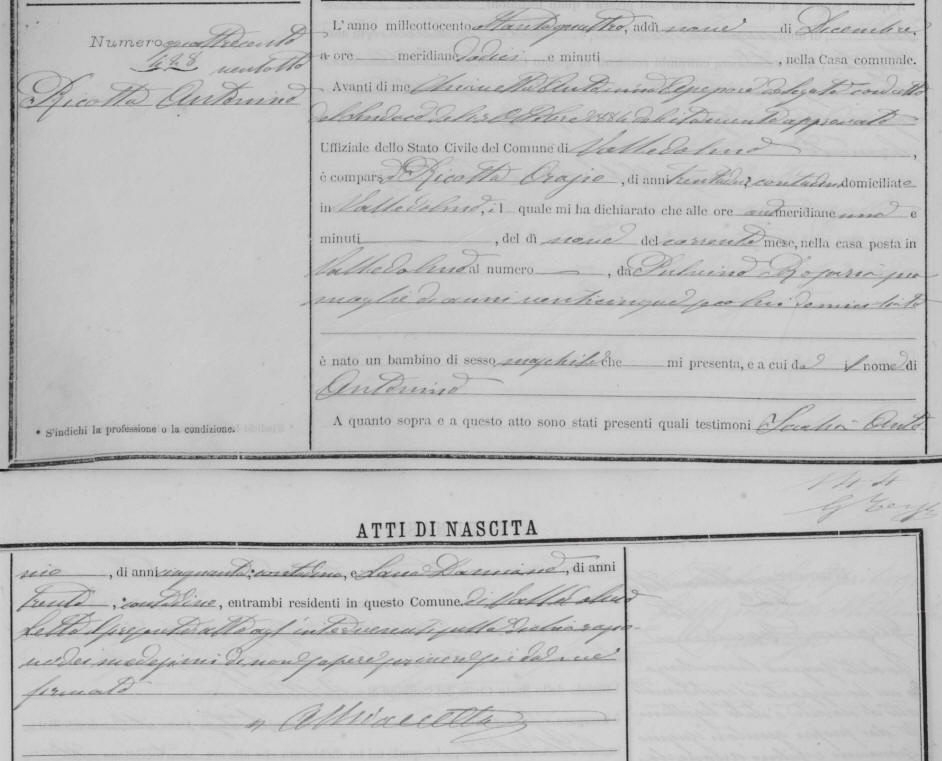 Numero quattrocento
428 ventotto
Ricotta Antonino
* S'indichi la professione o la condizione.
L'anno milleottocento ottantaquattro, addì nove di Dicembre,
a ore meridiane dodici e minuti , nella Casa comunale.
Avanti di me Antonino Assessore delegato con atto
del Sindaco 1884 debitamente approvato
Uffiziale dello Stato Civile del Comune di Valledolmo ,
è comparso Ricotta Orazio , di anni trentadue, contadino domiciliato
in Valledolmo, il quale mi ha dichiarato che alle ore antimeridiane una e
minuti , del dì nove del corrente mese, nella casa posta in
Valledolmo al numero , da Rosaria sua
moglie di anni venticinque seco lui domiciliata
è nato un bambino di sesso maschile che mi presenta, e a cui dà il nome di
Antonino
A quanto sopra e a questo atto sono stati presenti quali testimoni Anto
ATTI DI NASCITA
nio , di anni cinquanta, contadino, e Damiano, di anni
trenta , contadino, entrambi residenti in questo Comune di Valledolmo
Letto il presente atto agli intervenuti
medesimi di non sapere scrivere si è da me
firmato